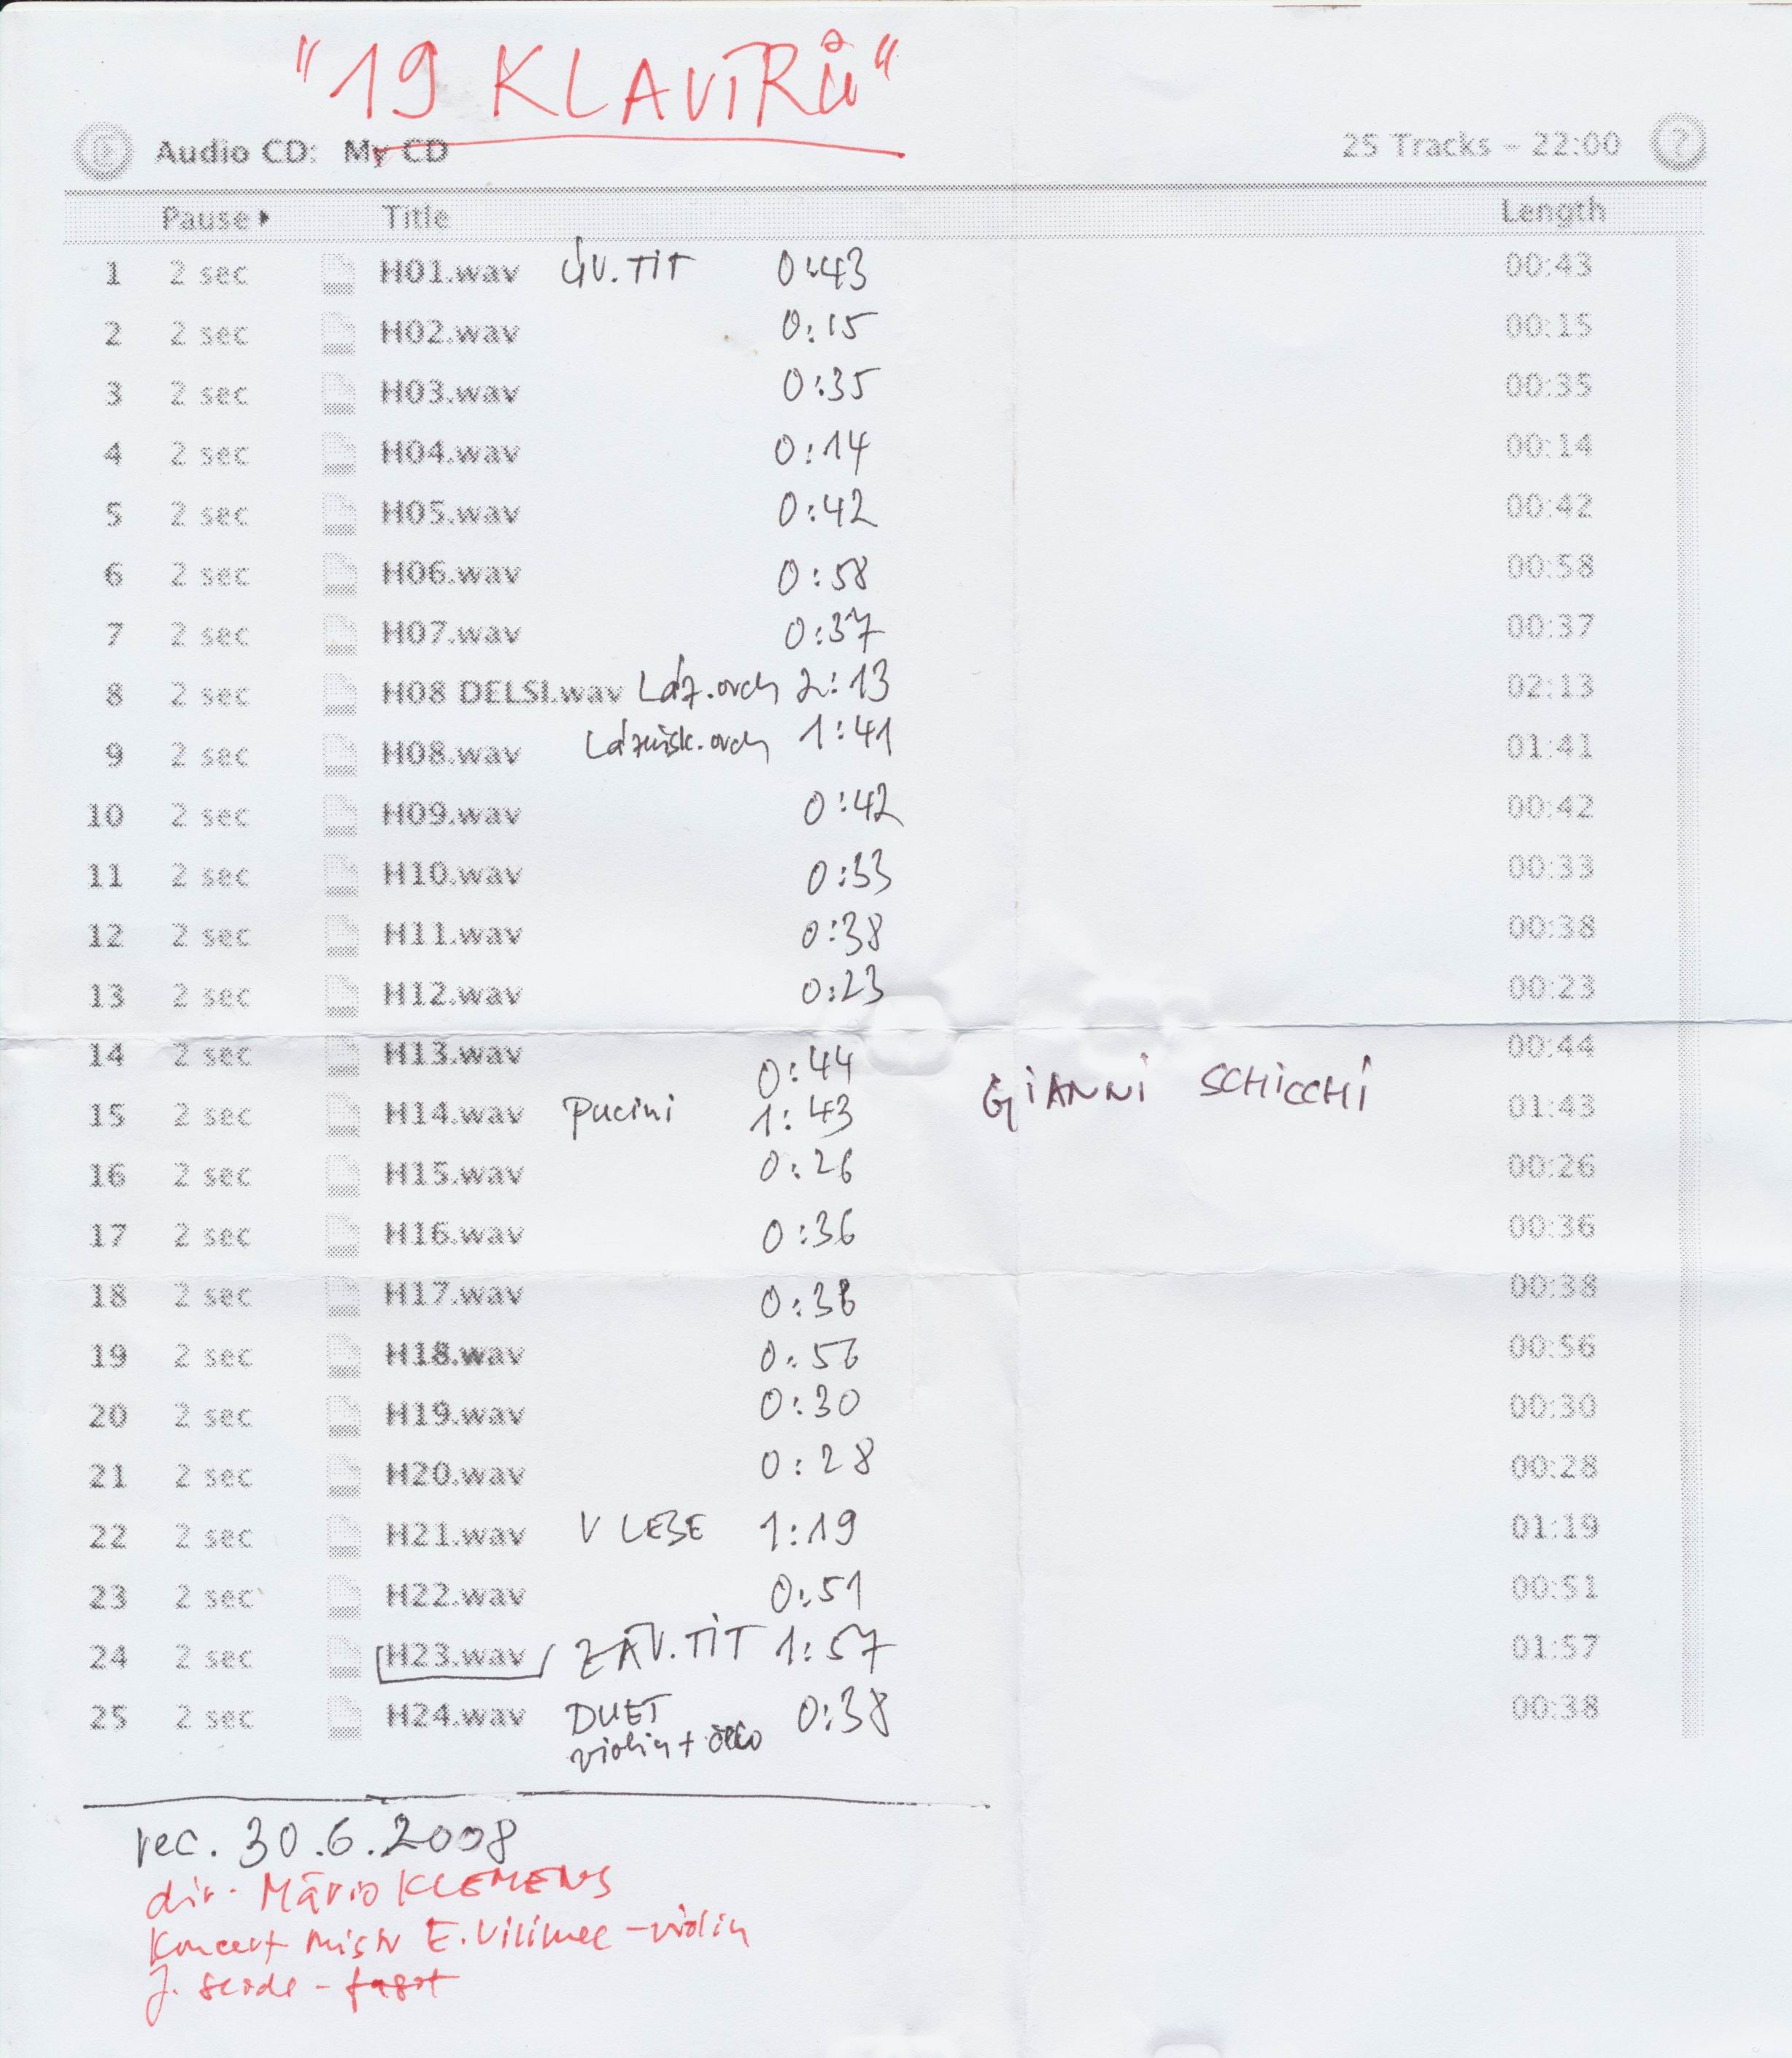 "19 KLAVÍRŮ"
Audio CD: My CD 25 Tracks – 22:00 ?
Pause Title Length
1 2 sec H01.wav ÚV. TIT 0:43 00:43
2 2 sec H02.wav 0:15 00:15
3 2 sec H03.wav 0:35 00:35
4 2 sec H04.wav 0:14 00:14
5 2 sec H05.wav 0:42 00:42
6 2 sec H06.wav 0:58 00:58
7 2 sec H07.wav 0:37 00:37
8 2 sec H08 DELSI.wav Láz.orch 2:13 02:13
9 2 sec H08.wav Lázeňsk.orch 1:41 01:41
10 2 sec H09.wav 0:42 00:42
11 2 sec H10.wav 0:33 00:33
12 2 sec H11.wav 0:38 00:38
13 2 sec H12.wav 0:23 00:23
14 2 sec H13.wav 0:44 00:44
15 2 sec H14.wav Pucini 1:43 GIANNI SCHICCHI 01:43
16 2 sec H15.wav 0:26 00:26
17 2 sec H16.wav 0:36 00:36
18 2 sec H17.wav 0:38 00:38
19 2 sec H18.wav 0:56 00:56
20 2 sec H19.wav 0:30 00:30
21 2 sec H20.wav 0:28 00:28
22 2 sec H21.wav V LESE 1:19 01:19
23 2 sec H22.wav 0:51 00:51
24 2 sec H23.wav ZÁV. TIT 1:57 01:57
25 2 sec H24.wav DUET 0:38 00:38
violin + čelo
rec. 30.6.2008
dir. Mário KLEMENS
Koncert mistr E. Vilimec – violin
J. – fagot